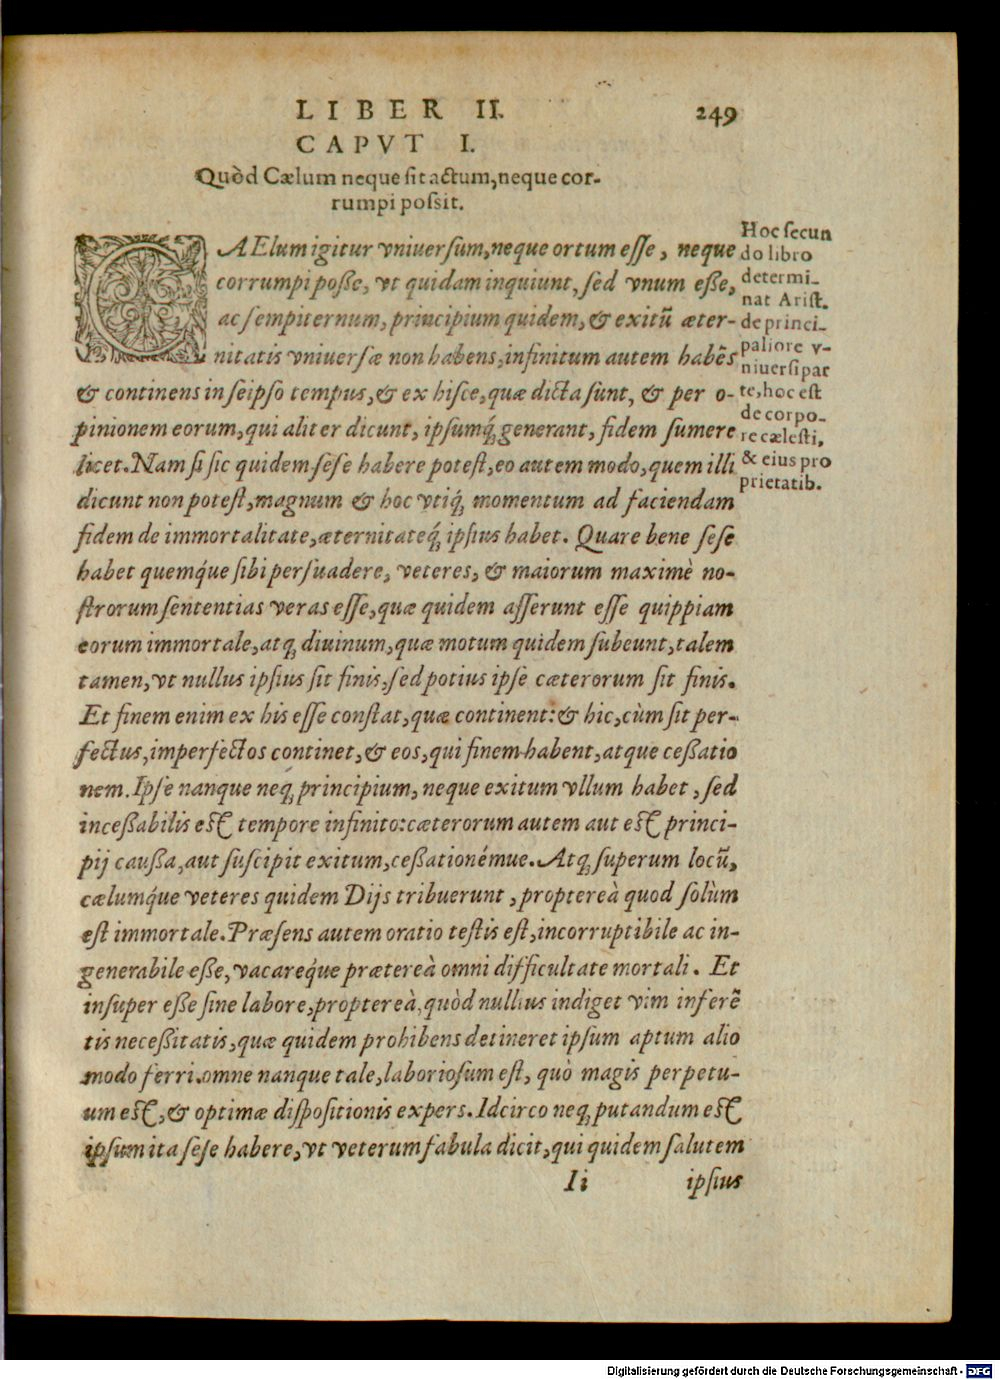 LIBER II. 249
CAPVT I.
Quòd Cælum neque sit actum, neque cor-
rumpi possit.
CAElum igitur vniuersum, neque ortum esse, neque
corrumpi posse, vt quidam inquiunt, sed vnum esse,
ac sempiternum, principium quidem, & exitũ æter-
nitatis vniuersæ non habens, infinitum autem habẽs
& continens in seipso tempus, & ex hisce, quæ dicta sunt, & per o-
pinionem eorum, qui aliter dicunt, ipsumq́ generant, fidem sumere
licet. Nam si sic quidem sese habere potest, eo autem modo, quem illi
dicunt non potest, magnum & hoc vtiq́ momentum ad faciendam
fidem de immortalitate, æternitateq́ ipsius habet. Quare bene sese
habet quemq́ue sibi persuadere, veteres, & maiorum maximè no-
strorum sententias veras esse, quæ quidem asserunt esse quippiam
eorum immortale, atq; diuinum, quæ motum quidem subeunt, talem
tamen, vt nullus ipsius sit finis, sed potius ipse cæterorum sit finis.
Et finem enim ex his esse constat, quæ continent: & hic, cùm sit per-
fectus, imperfectos continet, & eos, qui finem habent, atque cessatio
nem. Ipse nanque neq; principium, neque exitum vllum habet, sed
incessabilis est tempore infinito: cæterorum autem aut est princi-
pij caussa, aut suscipit exitum, cessationémue. Atq; superum locũ,
cælumq́ue veteres quidem Dijs tribuerunt, proptereà quod solùm
est immortale. Præsens autem oratio testis est, incorruptibile ac in-
generabile esse, vacareq́ue prætereà omni difficultate mortali. Et
insuper esse sine labore, proptereà, quòd nullius indiget vim inferẽ
tis necessitatis, quæ quidem prohibens detineret ipsum aptum alio
modo ferri. omne nanque tale, laboriosum est, quò magis perpetu-
um est, & optimæ dispositionis expers. Idcirco neq; putandum est
ipsum ita sese habere, vt veterum fabula dicit, qui quidem salutem
Ii ipsius
Hoc secun
do libro
determi-
nat Arist.
de princi-
paliore v-
niuersi par
te, hoc est
de corpo-
re cælesti,
& eius pro
prietatib.
Digitalisierung gefördert durch die Deutsche Forschungsgemeinschaft - DFG